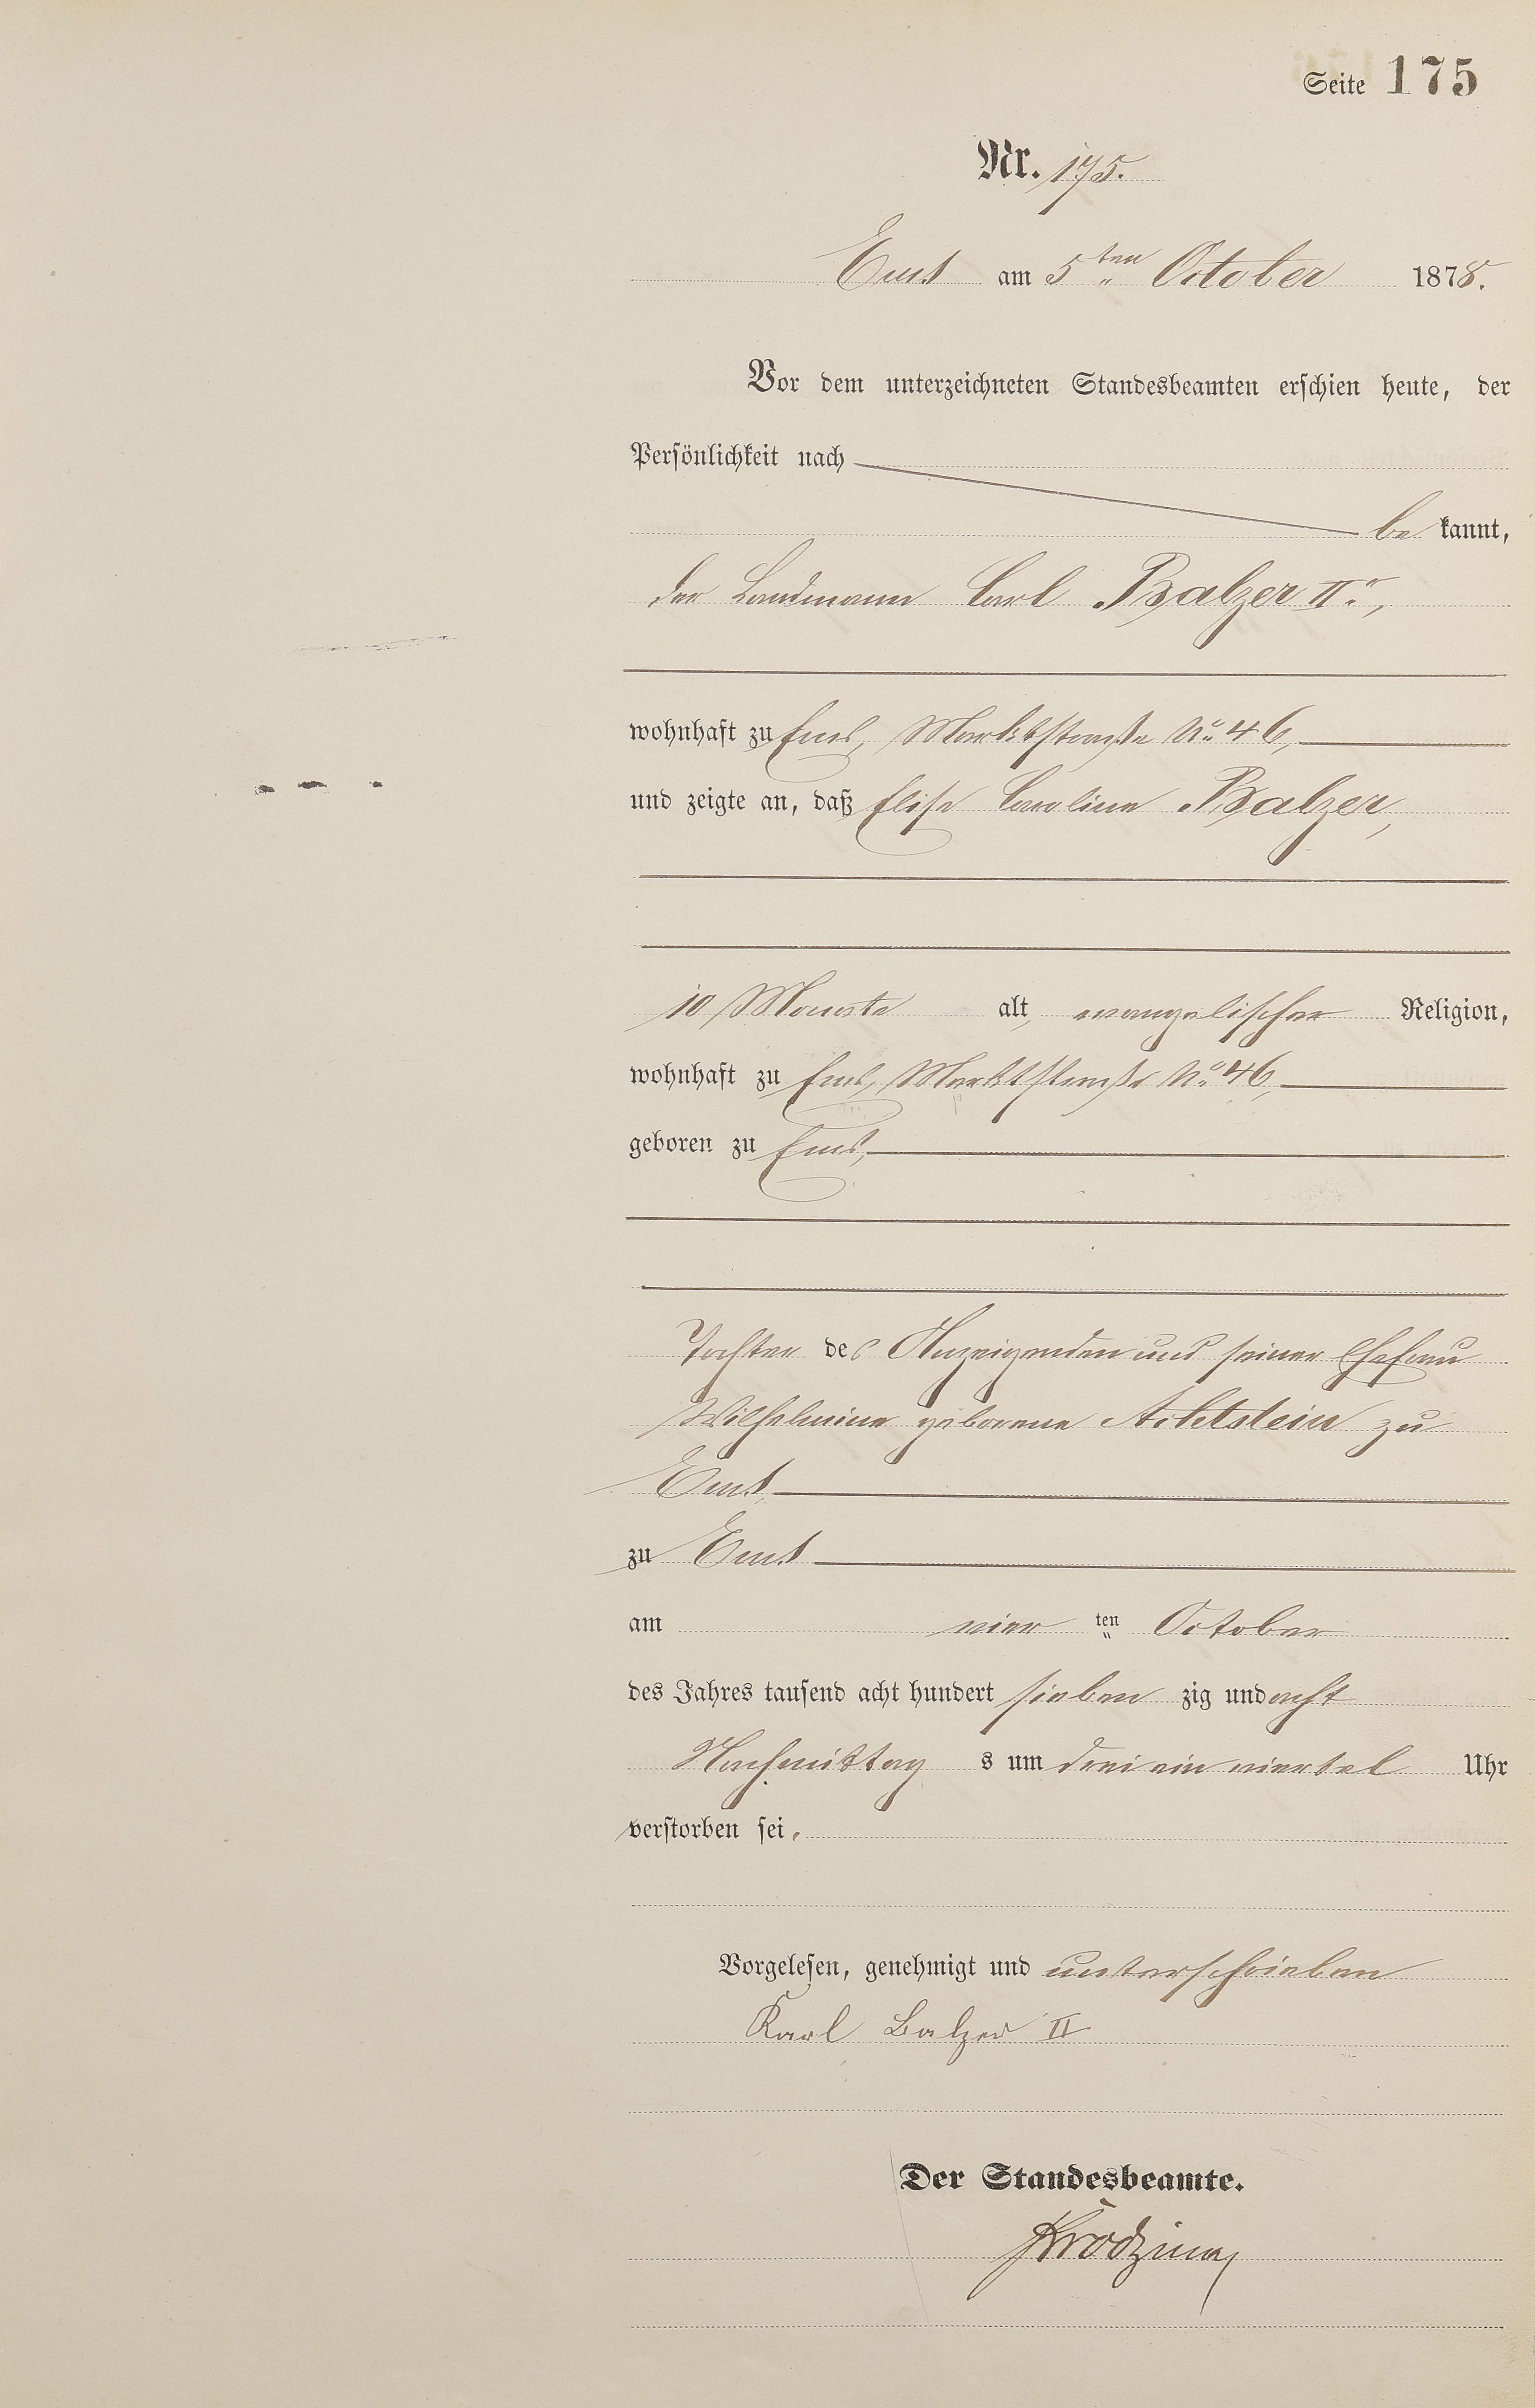 Seite 175
Nr. 175.
Ems am 5ten October 1878.
Vor dem unterzeichneten Standesbeamten erschien heute, der
Persönlichkeit nach
bekannt,
der Landmann Carl Balzer IIr,
wohnhaft zu Ems, Marktstraße No 46,
und zeigte an, daß Elise Caroline Balzer,
10 Monate alt, evangelischer Religion,
wohnhaft zu Ems, Marktstraße No 46,
geboren zu Ems,
Tochter des Anzeigenden und seiner Ehefrau
Wilhelmine geborene zu
Ems
zu Ems
am vier ten October
des Jahres tausend acht hundert sieben zig und acht
Nachmittag s um drei ein viertel Uhr
verstorben sei.
Vorgelesen, genehmigt und unterschrieben
Karl Balzer II
Der Standesbeamte.